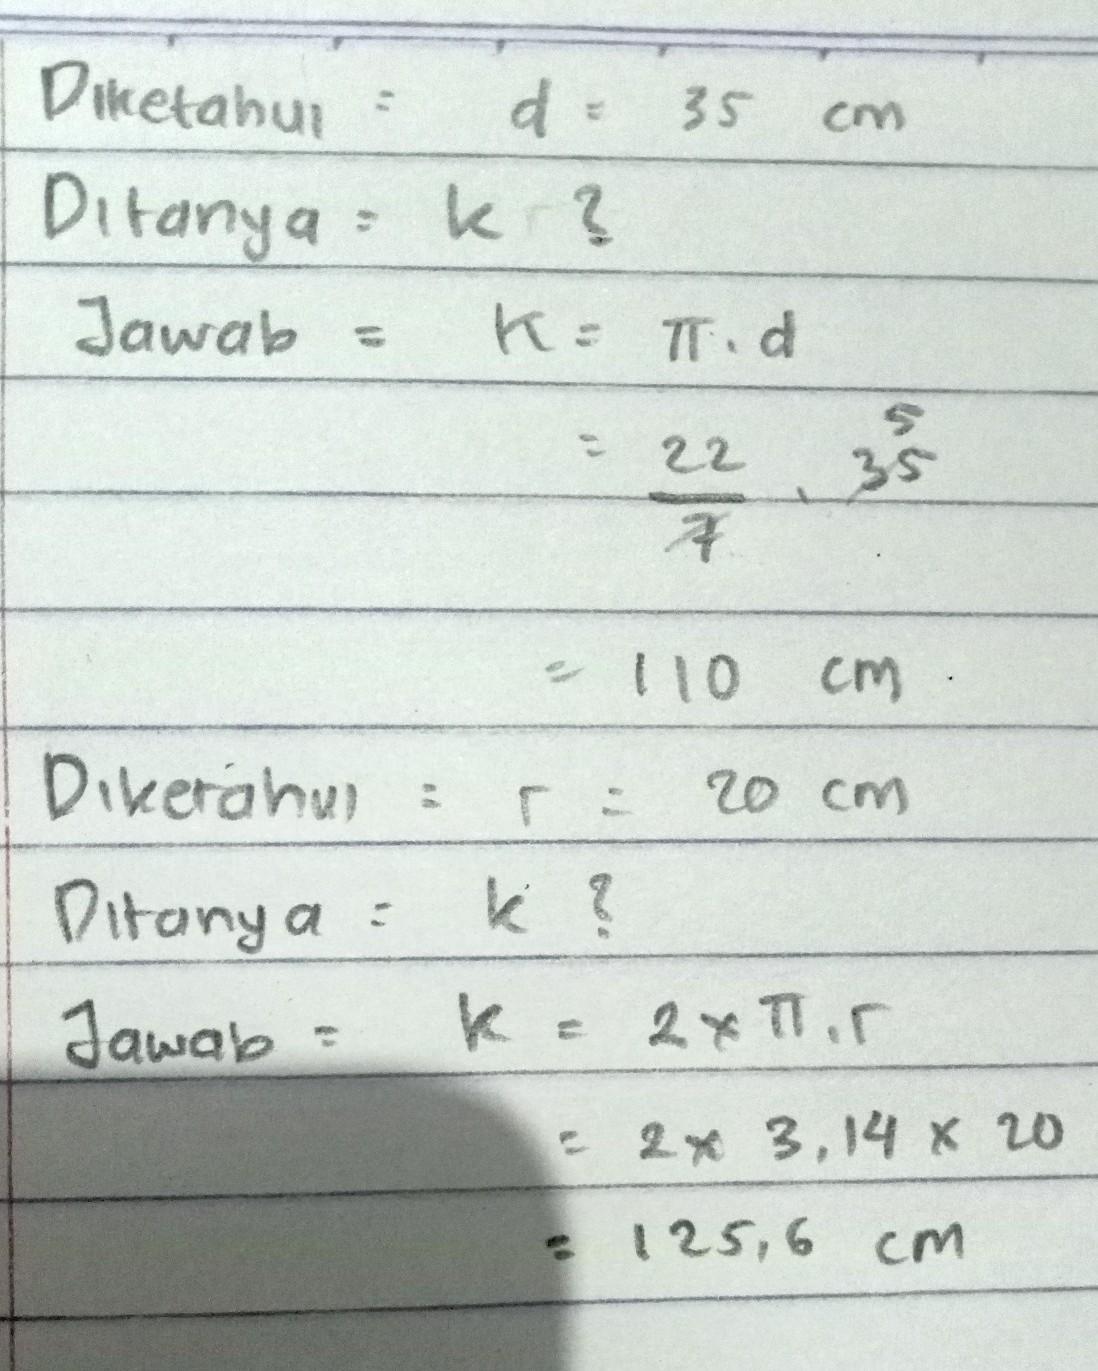 Diketahui = d = 35 cm
Ditanya = k ?
Jawab = K = π . d
= 22/7 . 35 5
= 110 cm
Diketahui = r = 20 cm
Ditanya = k ?
Jawab = k = 2 x π . r
= 2 x 3,14 x 20
= 125,6 cm